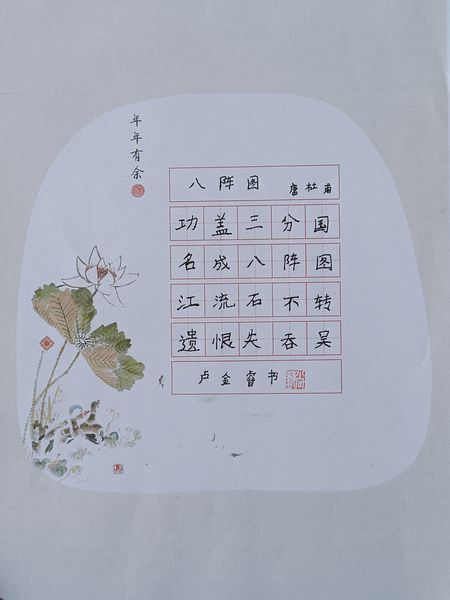 年年有余
八阵图 唐 杜甫
功盖三分国
名成八阵图
江流石不转
遗恨失吞吴
卢金睿书